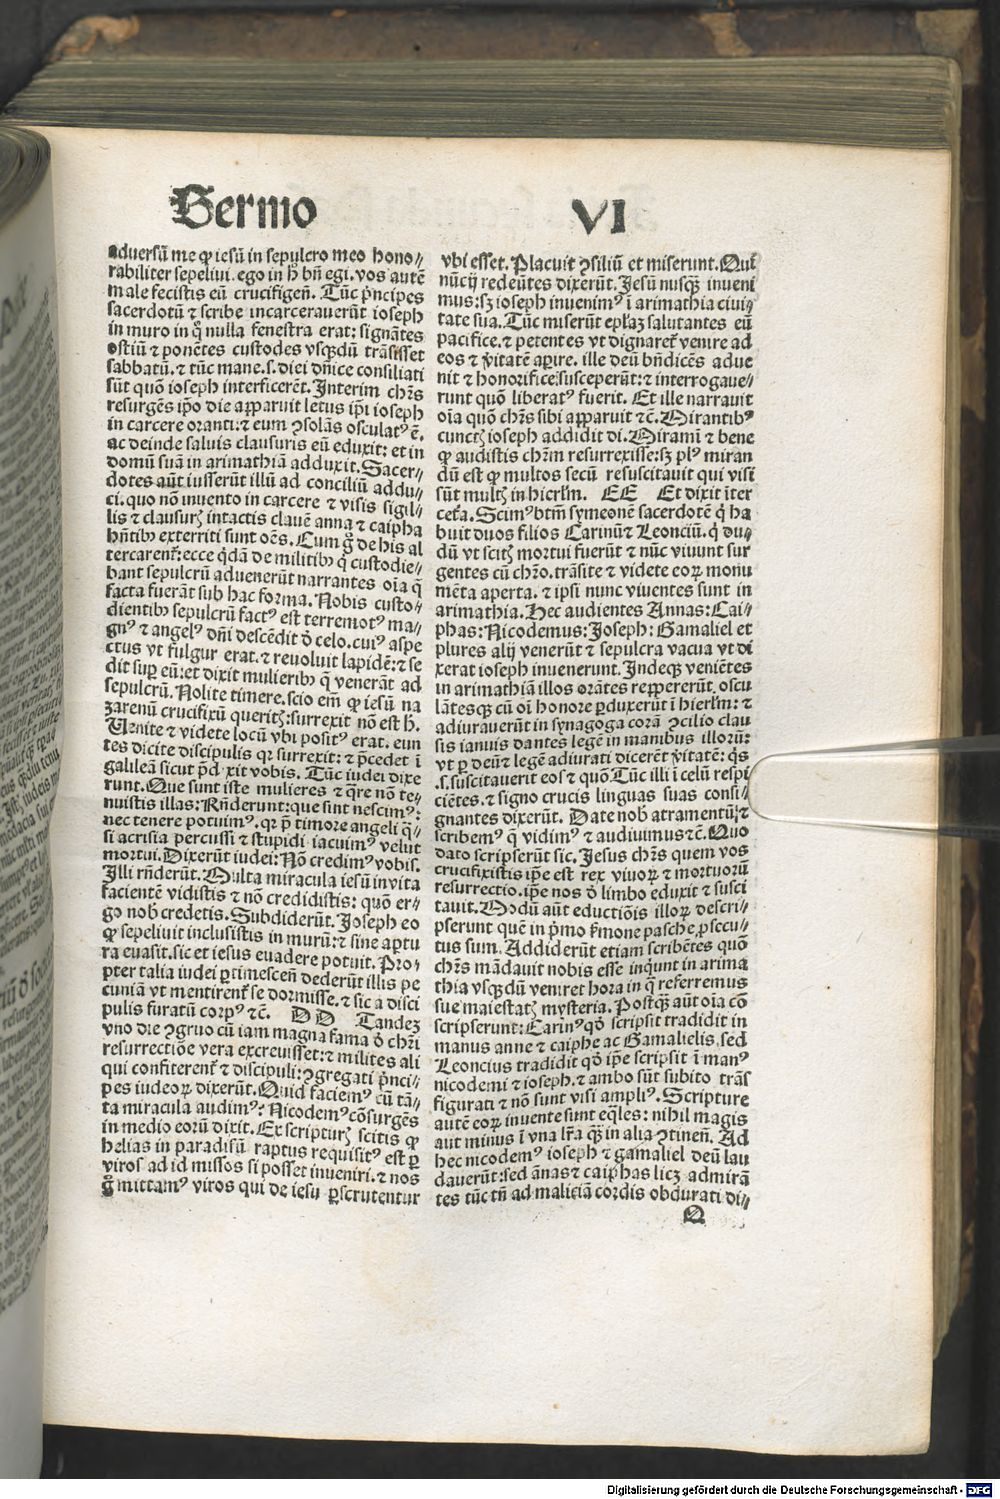 Sermo VI
adversū me ꝙ iesū in sepulcro meo hono⸗
rabiliter sepelivi. ego in ħ bn̄ egi. vos autē
male fecistis eū crucifigen̄. Tūc p̄ncipes
sacerdotū ⁊ scribe incarcerauerūt ioseph
in muro in q̊ nulla fenestra erat: signātes
ostiū ⁊ ponētes custodes vsqꝫdū trāsisset
sabbatū. ⁊ tūc mane .s. diei dn̄ice consiliati
sūt quō ioseph interficerēt. Interim chr̄s
resurgēs ip̄o die apparuit letus ip̄i ioseph
in carcere oranti: ⁊ eum ꝯsolās osculatꝰ ē.
ac deinde saluis clausuris eū eduxit: et in
domū suā in arimathiā adduxit. Sacer⸗
dotes aūt iusserūt illū ad conciliū addu⸗
ci. quo nō invento in carcere ⁊ visis sigil⸗
lis ⁊ clausurꝭ intactis clauē anna ⁊ caipha
hn̄tibꝰ exterriti sunt oēs. Cum g̊ de his al
tercarent᷑: ecce q̄dā de militibꝰ q̇ custodie⸗
bant sepulcrū aduenerūt narrantes oīa q̄
facta fuerāt sub hac forma. Nobis custo⸗
dientibꝰ sepulcrū factꝰ est terremotꝰ ma⸗
gnꝰ ⁊ angelꝰ dn̄i descēdit d̓ celo. cuiꝰ aspe
ctus vt fulgur erat. ⁊ reuoluit lapidē: ⁊ se
dit suꝑ eū: et dixit mulieribꝰ q̄ venerāt ad
sepulcrū. Nolite timere. scio em̄ ꝙ iesū na
zarenū crucifixū queritꝭ: surrexit nō est ħ.
Venite ⁊ videte locū vbi positꝰ erat. eun
tes dicite discipulis qꝛ surrexit: ⁊ p̄cedet ī
galileā sicut p̄dixit vobis. Tūc iudei dixe
runt. Que sunt iste mulieres ⁊ q̄re nō te⸗
nuistis illas: Rn̄derunt: que sunt nescimꝰ:
nec tenere potuimꝰ. qꝛ p̄ timore angeli q̄⸗
si acrisia percussi ⁊ stupidi iacuimꝰ velut
mortui. Dixerūt iudei: Nō credimꝰ vobis.
Illi rn̄derūt. Multa miracula iesū in vita
facientē vidistis ⁊ nō credidistis: quō er⸗
go nob̓ credetis. Subdiderūt. Joseph eo
ꝙ sepeliuit inclusistis in murū: ⁊ sine aꝑtu
ra euasit. sic et iesus euadere potuit. Pro⸗
pter talia iudei ꝑtimescen̄ dederūt illis pe
cuniā vt mentirent᷑ se dormisse. ⁊ sic a disci
pulis furatū corpꝰ ⁊c̄. DD Tandez
vno die ꝯgruo cū iam magna fama d̓ chr̄i
resurrectiōe vera excreuisset: ⁊ milites ali
qui confiterent᷑ ⁊ discipuli: ꝯgregati p̄nci⸗
pes iudeoꝝ dixerūt. Quid faciemꝰ cū tā⸗
ta miracula audimꝰ: Nicodemꝰ cōsurgēs
in medio eorū dixit. Ex scripturꝭ scitis ꝙ
helias in paradisū raptus requisitꝰ est ꝑ
viros ad id missos si posset inueniri. ⁊ nos
g̊ mittamꝰ viros qui de iesu ꝑscrutentur
vbi esset. Placuit ꝯsiliū et miserunt. Qui
nūcij redeūtes dixerūt. Jesū nusqꝫ inueni
mus: sꝫ ioseph inuenimꝰ ī arimathia ciui⸗
tate sua. Tūc miserūt eplaꝫ salutantes eū
pacifice. ⁊ petentes vt dignaret᷑ venire ad
eos ⁊ v̓itatē aꝑire. ille deū bn̄dicēs adue
nit ⁊ honorifice susceperūt: ⁊ interrogaue⸗
runt quō liberatꝰ fuerit. Et ille narrauit
oīa quō chr̄s sibi apparuit ⁊c̄. Mirantibꝰ
cunctꝭ ioseph addidit di. Miramī ⁊ bene
ꝙ audistis chr̄m resurrexisse: sꝫ plꝰ miran
dū est ꝙ multos secū resuscitauit qui visi
sūt multꝭ in hierlm̄. EE Et dixit īter
cetᷓa. Scimꝰ btm̄ symeonē sacerdotē q̇ ha
buit duos filios Carinū ⁊ Leonciū. q̇ du⸗
dū vt scitꝭ mortui fuerūt ⁊ nūc viuunt sur
gentes cū chr̄o. trāsite ⁊ videte eoꝝ monu
mēta aperta. ⁊ ipsi nunc viuentes sunt in
arimathia. Hec audientes Annas: Cai⸗
phas: Nicodemus: Joseph: Gamaliel et
plures alij venerūt ⁊ sepulcra vacua vt di
xerat ioseph inuenerunt. Indeqꝫ veniētes
in arimathiā illos orātes reppererūt. oscu
lātesqꝫ cū oī honore ꝑduxerūt ī hierlm̄: ⁊
adiurauerūt in synagoga corā ꝯcilio clau
sis ianuis dantes legē in manibus illorū:
vt ꝑ deū ⁊ legē adiurati dicerēt v̓itatē: q̇s
.s. suscitauerit eos ⁊ quō Tūc illi ī celū respi
ciētes. ⁊ signo crucis linguas suas consi⸗
gnantes dixerūt. Date nob̓ atramentū: ⁊
scribemꝰ q̄ vidimꝰ ⁊ audiuimus ⁊c̄. Quo
dato scripserūt sic. Jesus chr̄s quem vos
crucifixistis ip̄e est rex viuoꝝ ⁊ mortuorū
resurrectio. ip̄e nos d̓ limbo eduxit ⁊ susci
tauit. Modū aūt eductiōis illoꝝ descri⸗
pserunt quē in p̄mo s̓mone pasche ꝓsecu⸗
tus sum. Addiderūt etiam scribētes quō
chr̄s mādauit nobis esse inq̇unt in arima
thia vsqꝫdū veniret hora in q̄ referremus
sue maiestatꝭ mysteria. Postqꝫ aūt oīa cō
scripserunt: Carinꝰ qd̓ scripsit tradidit in
manus anne ⁊ caiphe ac Gamalielis. sed
Leoncius tradidit qd̓ ip̄e scripsit ī manꝰ
nicodemi ⁊ ioseph. ⁊ ambo sūt subito trās
figurati ⁊ nō sunt visi ampliꝰ. Scripture
autē eoꝝ inuente sunt eq̄les: nihil magis
aut minus ī vna lr̄a qꝫ in alia ꝯtinen̄. Ad
hec nicodemꝰ ioseph ⁊ gamaliel deū lau
dauerūt: sed ānas ⁊ caiphas licꝫ admirā
tes tūc tn̄ ad maliciā cordis obdurati di⸗
Q
Digitalisierung gefördert durch die Deutsche Forschungsgemeinschaft - DFG